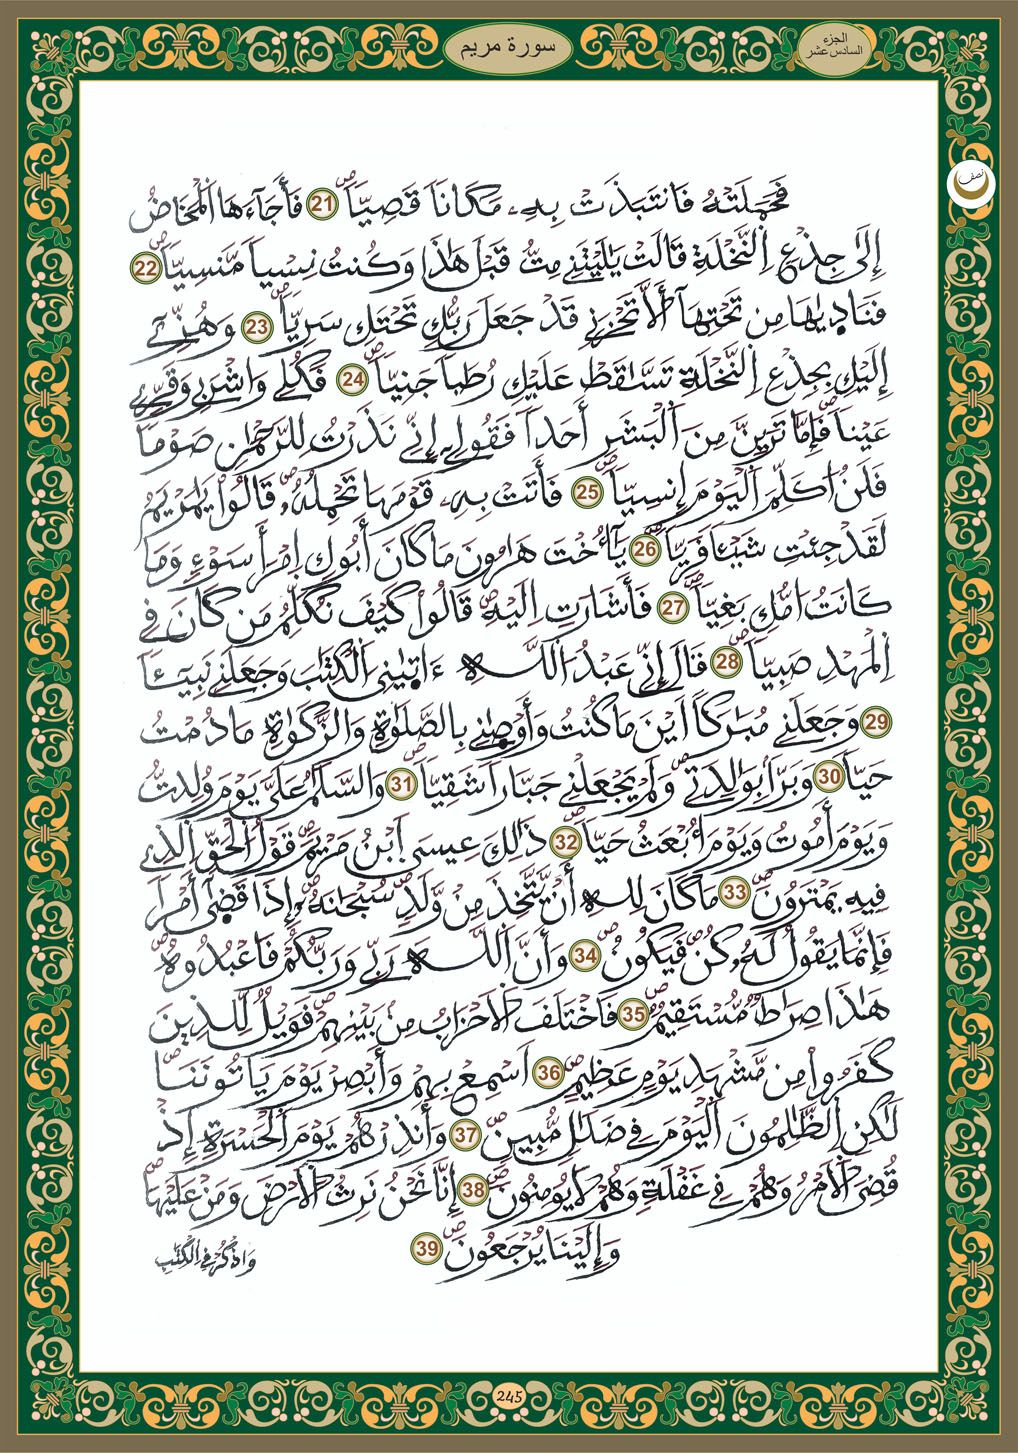 سورة مريم
الجزء
السادس عشر
نصف
فَحَمَلَتْهُ فَانتَبَذَتْ بِهِۦ مَكَاناٗ قَصِيّاٗۖ 21 فَأَجَآءَهَا اَ۬لْمَخَاضُ
إِلَىٰ جِذْعِ اِ۬لنَّخْلَةِ قَالَتْ يَٰلَيْتَنِے مِتُّ قَبْلَ هَٰذَا وَكُنتُ نِسْياٗ مَّنسِيّاٗۖ 22
فَنَادٜيٰهَا مِن تَحْتِهَآ أَلَّا تَحْزَنِے قَدْ جَعَلَ رَبُّكِ تَحْتَكِ سَرِيّاٗۖ 23 وَهُزِّےٓ
إِلَيْكِ بِجِذْعِ اِ۬لنَّخْلَةِ تَسَّٰقَطْ عَلَيْكِ رُطَباٗ جَنِيّاٗۖ 24 فَكُلِے وَاشْرَبِے وَقَرِّے
عَيْناٗۖ فَإِمَّا تَرَيِنَّ مِنَ اَ۬لْبَشَرِ أَحَداٗ فَقُولِےٓ إِنِّے نَذَرْتُ لِلرَّحْمَٰنِ صَوْماٗ
فَلَنُ ا۟كَلِّمَ اَ۬لْيَوْمَ إِنسِيّاٗۖ 25 فَأَتَتْ بِهِۦ قَوْمَهَا تَحْمِلُهُۥۖ قَالُواْ يَٰمَرْيَمُ
لَقَدْ جِئْتِ شَيْـٔاٗ فَرِيّاٗۖ 26 يَٰٓأُخْتَ هَٰرُونَ مَا كَانَ أَبُوكِ اِ۪مْرَأَ سَوْءٖ وَمَا
كَانَتُ ا۟مُّكِ بَغِيّاٗۖ 27 فَأَشَارَتِ اِلَيْهِۖ قَالُواْ كَيْفَ نُكَلِّمُ مَن كَانَ فِے
اِ۬لْمَهْدِ صَبِيّاٗۖ 28 قَالَ إِنِّے عَبْدُ اُ۬للَّهِ ءَاتٜيٰنِيَ اَ۬لْكِتَٰبَ وَجَعَلَنِے نَبِيٓـٔاٗ
29 وَجَعَلَنِے مُبَٰرَكاً اَيْنَ مَا كُنتُ وَأَوْصٜيٰنِے بِالصَّلَوٰةِ وَالزَّكَوٰةِ مَا دُمْتُ
حَيّاٗ 30 وَبَرّاَۢ بِوَٰلِدَتِےۖ وَلَمْ يَجْعَلْنِے جَبَّاراٗ شَقِيّاٗۖ 31 وَالسَّلَٰمُ عَلَيَّ يَوْمَ وُلِدتُّ
وَيَوْمَ أَمُوتُ وَيَوْمَ أُبْعَثُ حَيّاٗۖ 32 ذَٰلِكَ عِيسَى اَ۪بْنُ مَرْيَمَۖ قَوْلُ اُ۬لْحَقِّ اِ۬لذِے
فِيهِ يَمْتَرُونَۖ 33 مَا كَانَ لِلهِ أَنْ يَّتَّخِذَ مِنْ وَّلَدٖۖ سُبْحَٰنَهُۥٓۖ إِذَا قَضَىٰٓ أَمْراٗ
فَإِنَّمَا يَقُولُ لَهُۥ كُن فَيَكُونُۖ 34 وَأَنَّ اَ۬للَّهَ رَبِّے وَرَبُّكُمْ فَاعْبُدُوهُۖ
هَٰذَا صِرَٰطٞ مُّسْتَقِيمٞۖ 35 فَاخْتَلَفَ اَ۬لَاحْزَابُ مِنۢ بَيْنِهِمْۖ فَوَيْلٞ لِّلذِينَ
كَفَرُواْ مِن مَّشْهَدِ يَوْمٍ عَظِيمٍۖ 36 اَسْمِعْ بِهِمْ وَأَبْصِرْ يَوْمَ يَاتُونَنَاۖ
لَٰكِنِ اِ۬لظَّٰلِمُونَ اَ۬لْيَوْمَ فِے ضَلَٰلٖ مُّبِينٖۖ 37 وَأَنذِرْهُمْ يَوْمَ اَ۬لْحَسْرَةِ إِذْ
قُضِيَ اَ۬لَامْرُ وَهُمْ فِے غَفْلَةٖ وَهُمْ لَا يُومِنُونَۖ 38 إِنَّا نَحْنُ نَرِثُ اُ۬لَارْضَ وَمَنْ عَلَيْهَاۖ
وَإِلَيْنَا يُرْجَعُونَۖ 39
وَاذْكُرْ فِے اِ۬لْكِتَٰبِ
245